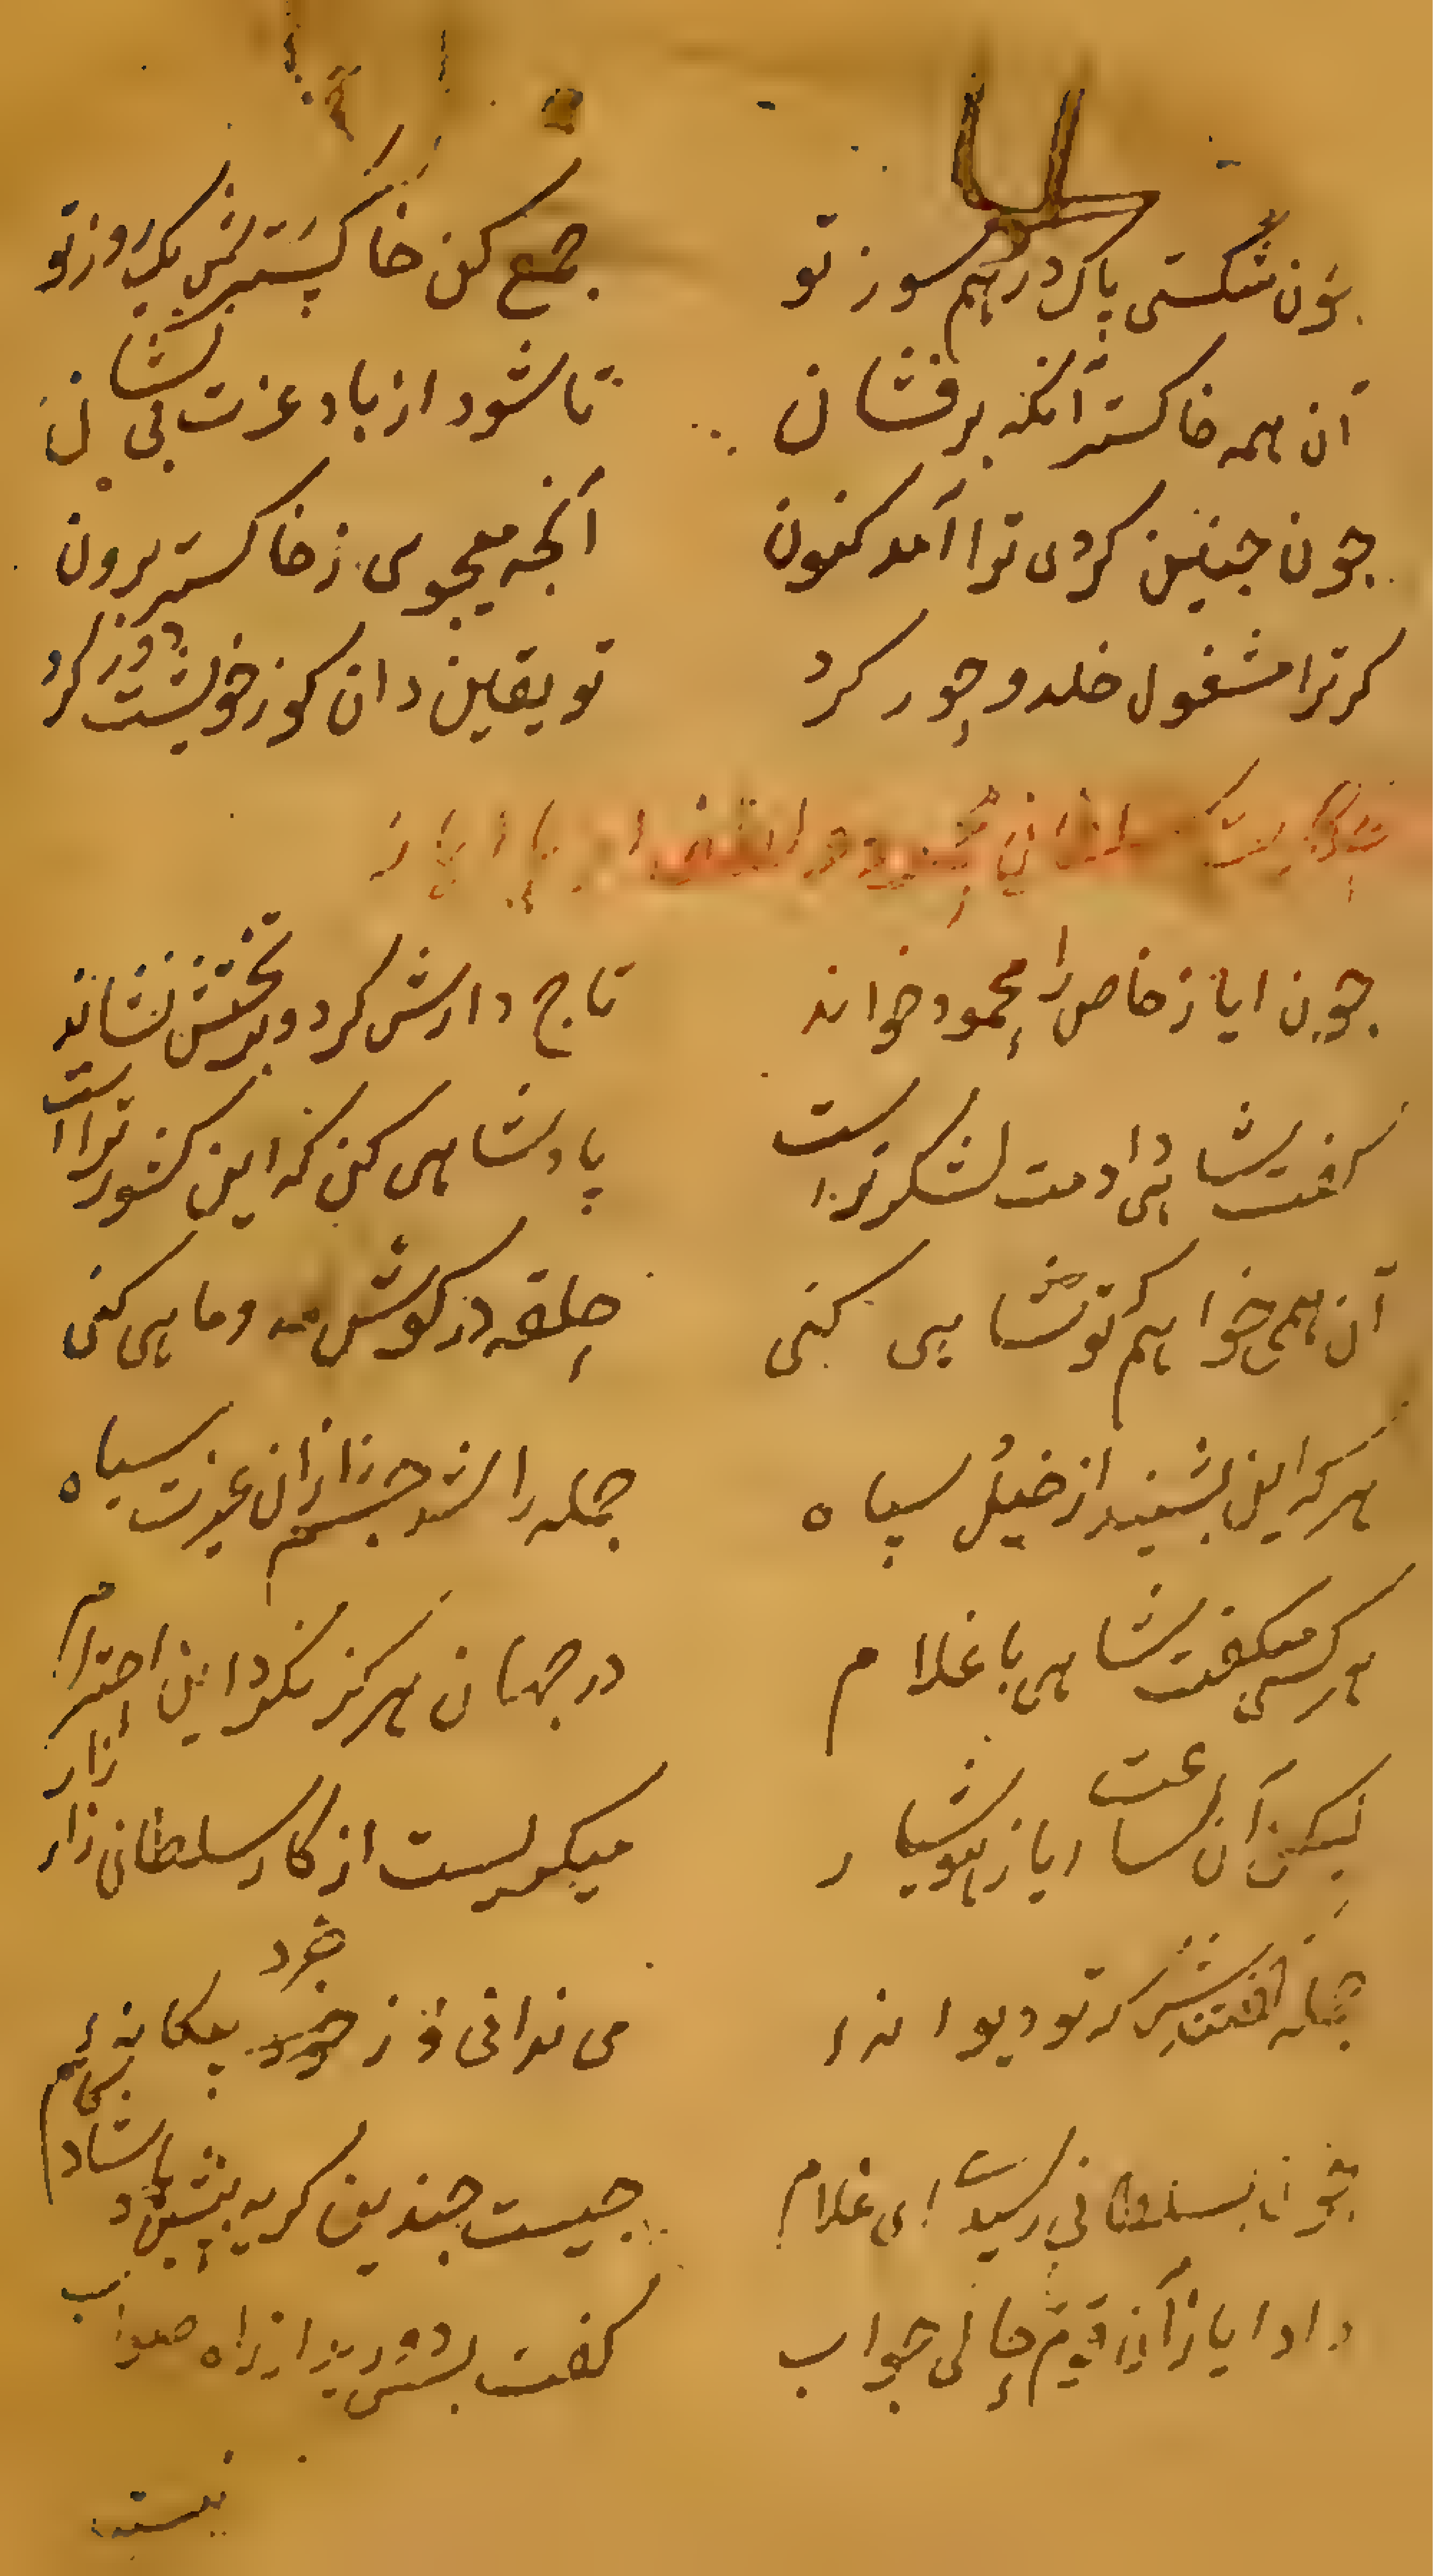 چون شکستی پاک درهم سوز تو جمع کن خاکسترش یک روز تو
آن همه خاکستر آنکه برفشان تا شود از باد عزت بی نشان
جون جنین کردی ترا آمد کنون آنجه میجوی ز خاکستر برون
کر ترا مشغول خلد و حور کرد تو یقین دان کو ز خویشت دور کرد
حکایت
جون ایاز خاص را محمود خواند تاج دارش کرد و بر تختش نشاند
کفت شاهی دادمت لشکر تراست پادشاهی کن که این کشور تراست
آن همی خواهم که تو شاهی کنی حلقه در کوش مه و ماهی کنی
هرکه این بشنید از خیل سپاه جمله را شد جشم زان عزت سیاه
هر کسی میکفت شاهی با غلام در جهان هرکز نکرد این احترام
لیکن آن ساعت ایاز هوشیار میکریست از کار سلطان زار زار
جمله کفتندش که تو دیوانه‌ء می ندانی وز خرد بیکانه‌ء
جون بسلطانی رسیدی ای غلام جیست جندین کریه بنشین شاد
داد ایاز آن قوم را حالی جواب کفت بس دورید از راه صواب
نیستید